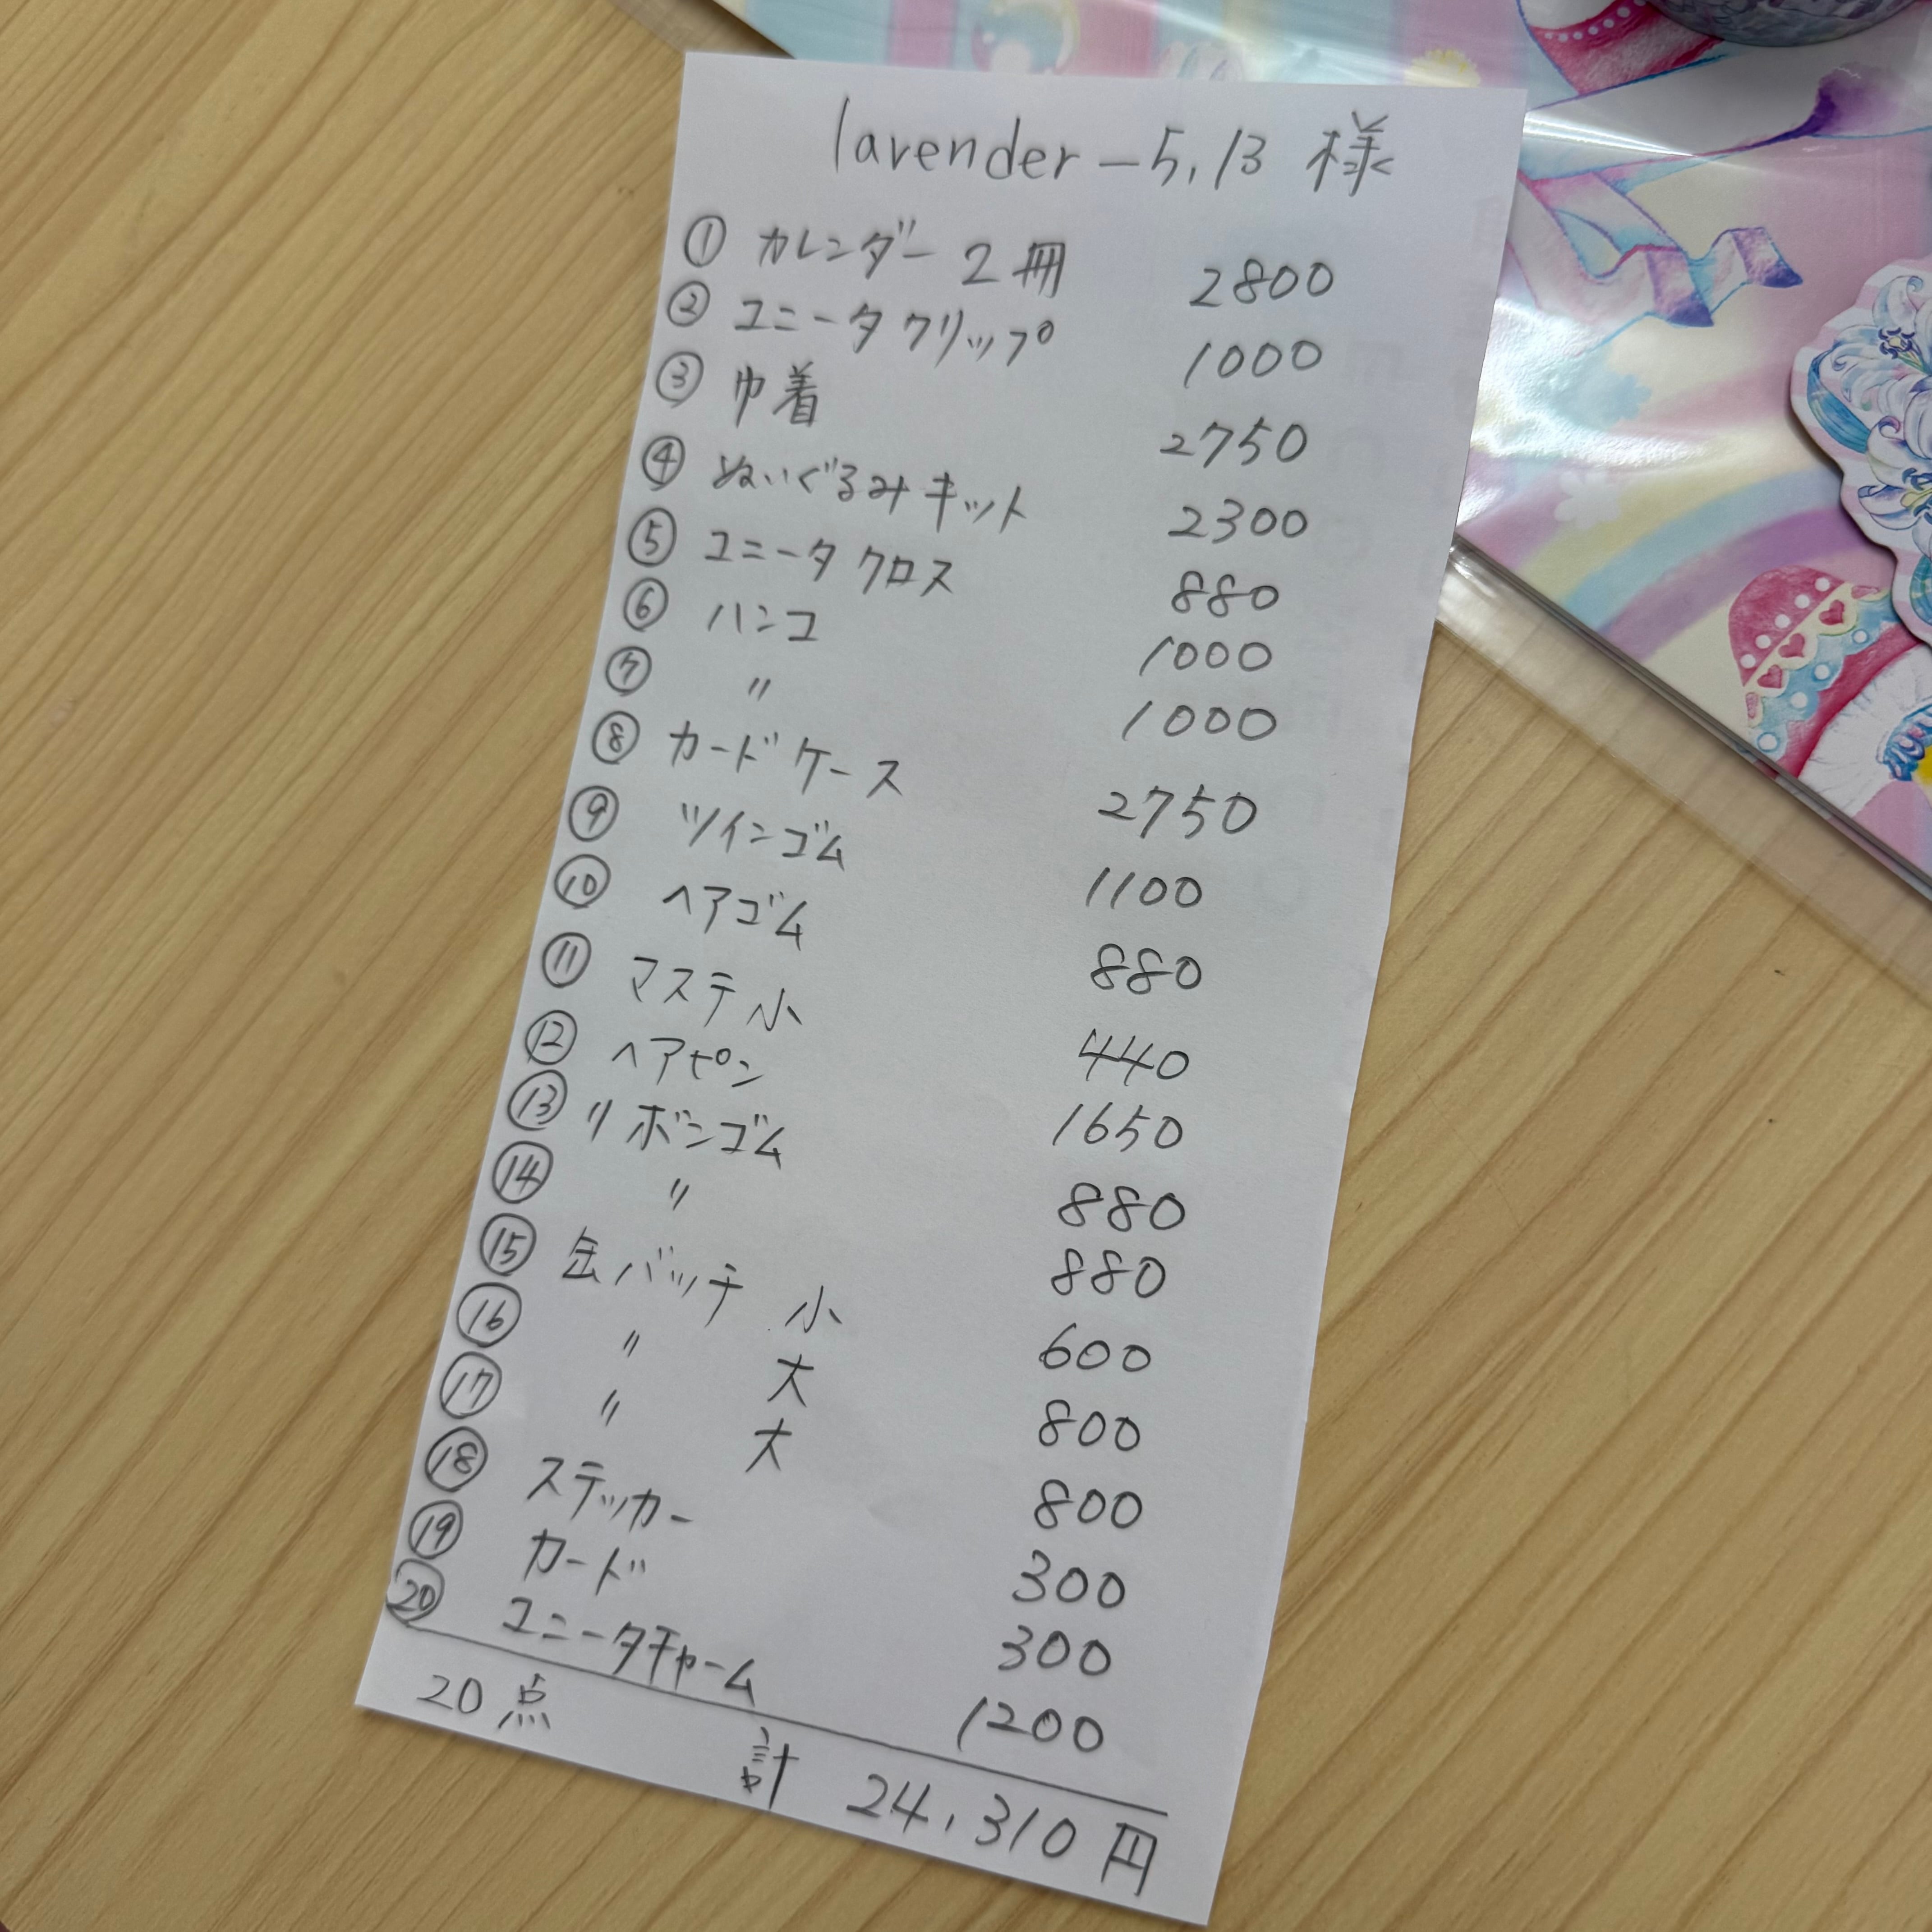 lavender-5,13 様
① カレンダー 2冊 2800
② ユニータクリップ 1000
③ 巾着 2750
④ ぬいぐるみキット 2300
⑤ ユニータクロス 880
⑥ ハンコ 1000
⑦ 〃 1000
⑧ カードケース 2750
⑨ ツインゴム 1100
⑩ ヘアゴム 880
⑪ マステ小 440
⑫ ヘアピン 1650
⑬ リボンゴム 880
⑭ 〃 880
⑮ 缶バッチ 小 600
⑯ 〃 大 800
⑰ 〃 大 800
⑱ ステッカー 300
⑲ カード 300
⑳ ユニータチャーム 1200
20点 計 24,310円